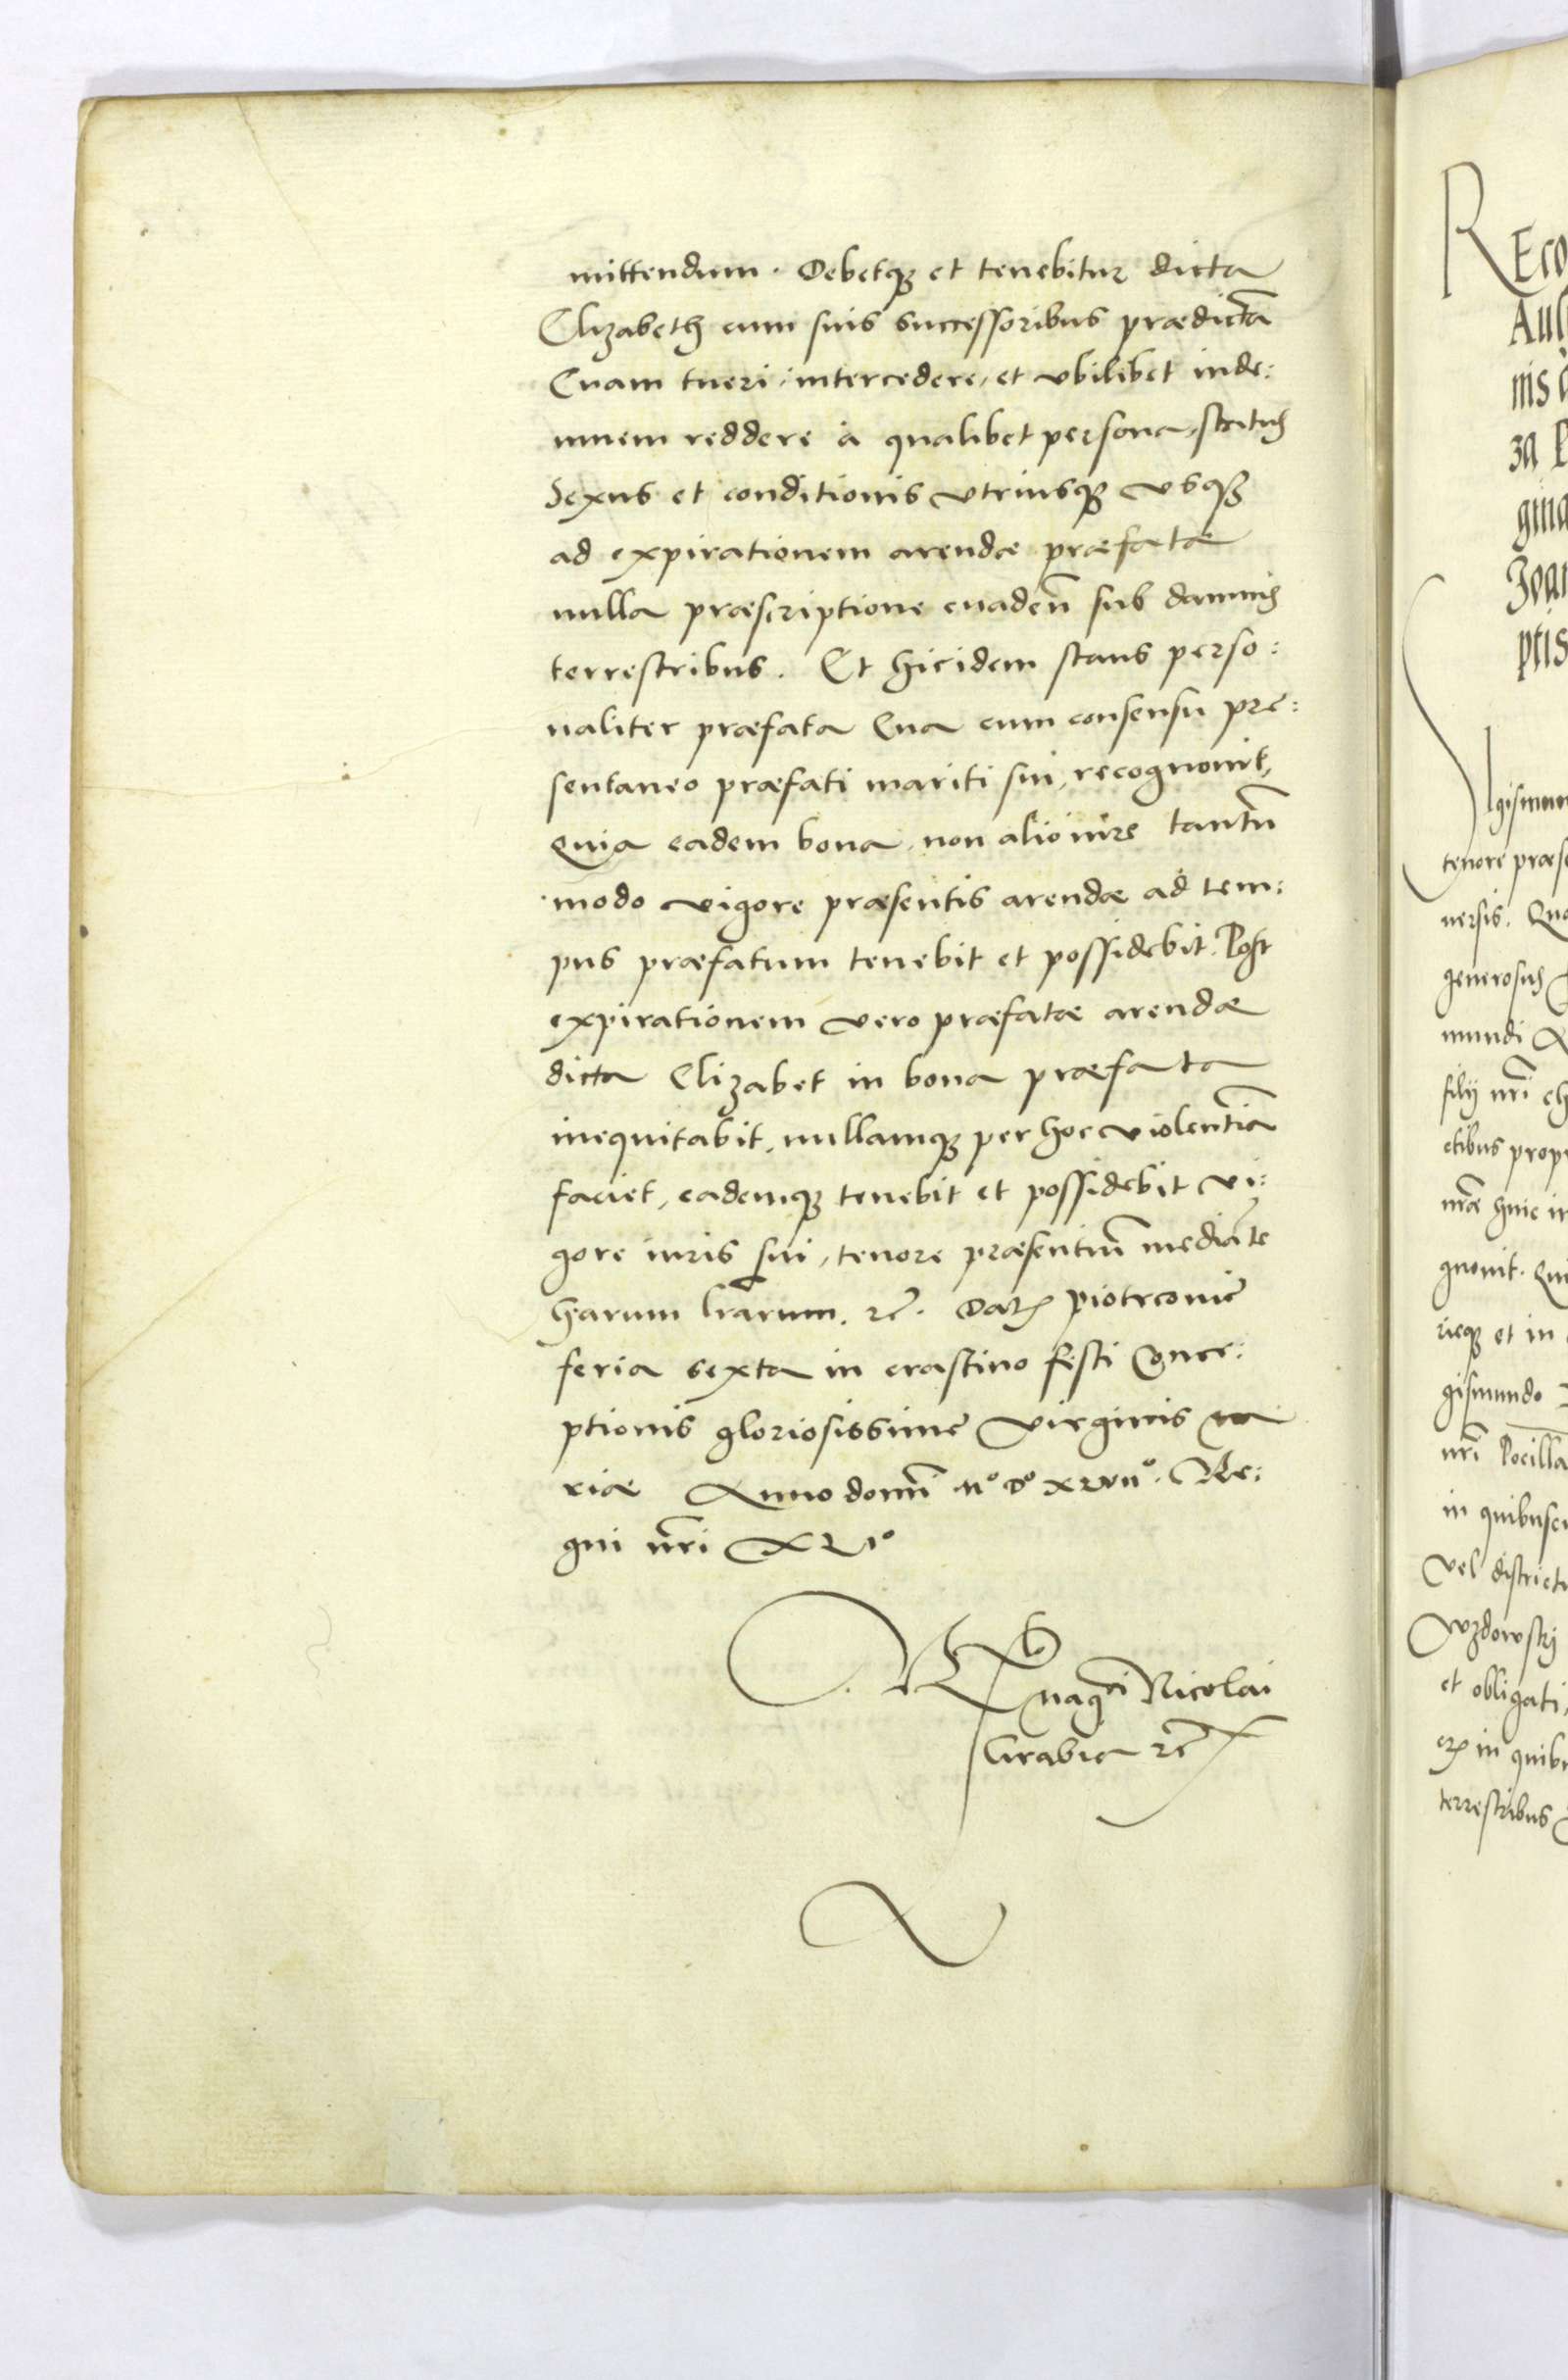 mittendum. Debetq₃ et tenebitur dicta
Elizabeth cum suis successoribus prædictā
Evam tueri, intercedere, et vbilibet inde:
mnem reddere à qualibet persona, status
Sexus et conditionis vtriusq₃ vsq₃
ad expirationem arendæ præfatæ
nulla præscriptione euadeñ sub damnis
terrestribus. Et hicidem stans perso:
naliter præfata Eua cum consensu pre:
sentaneo præfati mariti sui, recognouit,
Quia eadem bona, non alio iure tantũ
modo vigore præsentis arendæ ad tem:
pus præfatum tenebit et possidebit. Post
expirationem vero præfatæ arendæ
dicta Elizabet in bona præfata
inequitabit, nullamq₃ per hoc violentiã
faciet, eademq₃ tenebit et possidebit vi:
gore iuris sui, tenore præsentiũ mediãte
harum lrãrum. ꝛc̃. Datꝭ piotrconie
feria sexta in crastino festi Conce:
ptionis gloriosissime virginis ma
riæ Anno domĩ Mº Dº xlviiº. Re:
gni nrĩ XLIº
Magci Nicolai
Grabia ꝛc̃
REco
nis
gina
Joan
ptis
gismun
tenore præse
uersis. Quo
generosus
mundi
filij nrĩ
ctibus prop
nræ huic in
gnouit. Qui
ricq₃ et in
gismundo
nrĩ Pocilla
in quibuscu
vel districtu
wzdowskj
et obligati,
in quibu
terrestribus